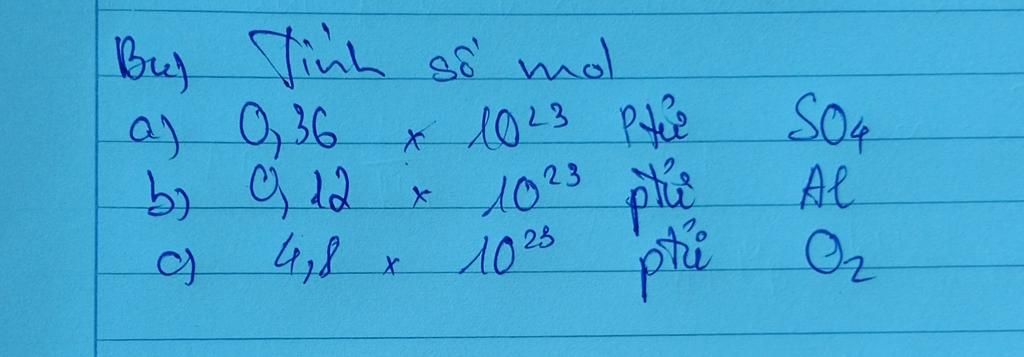 Tính số mol
a) 0,36 x 10²³ Ptử SO₄
b) 0,12 x 10²³ ptử Al
c) 4,8 x 10²³ ptử O₂